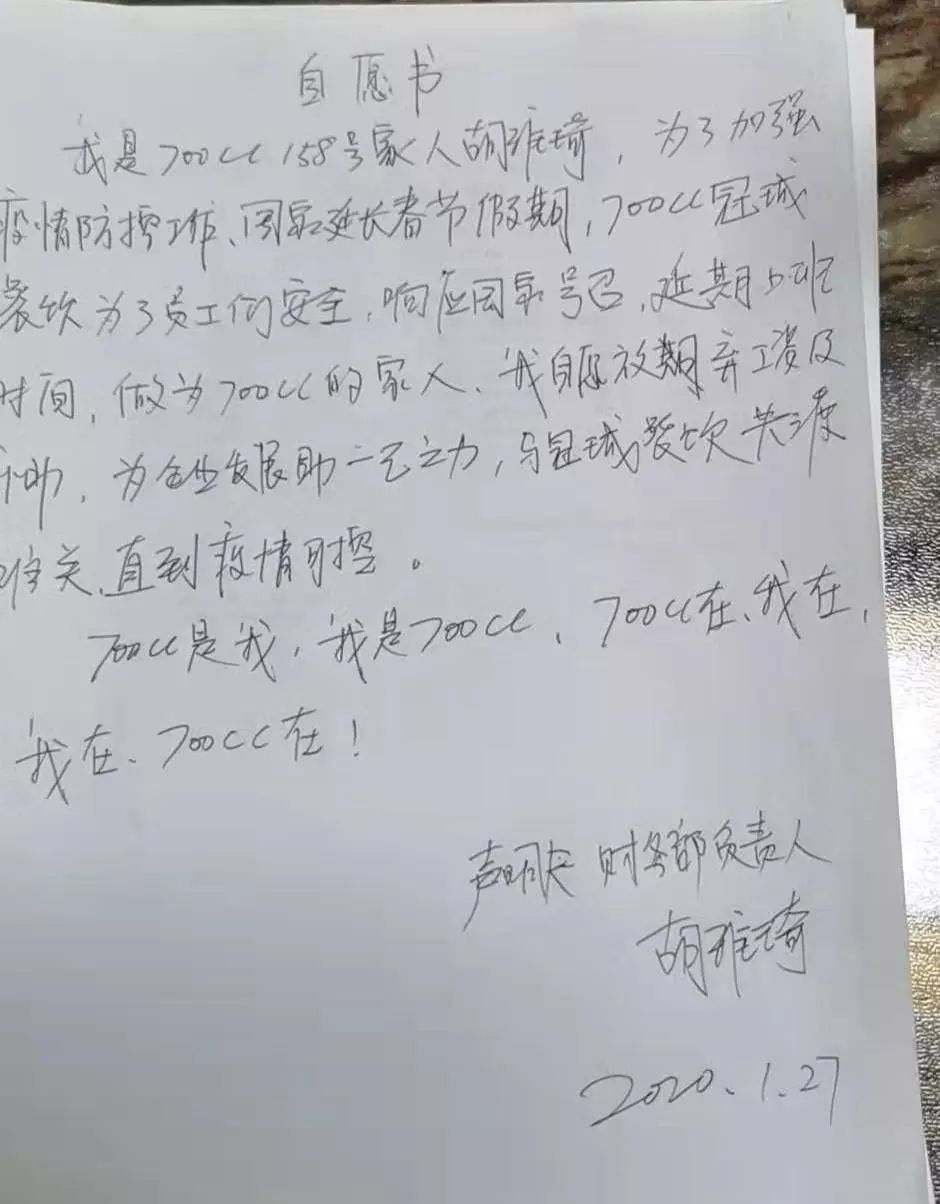 自愿书
我是700CC 158号家人胡雅琦，为了加强
疫情防控工作、国家延长春节假期，700CC冠城
餐饮为了员工们安全，响应国家号召，延期上班
时间，做为700CC的家人、我自愿放期弃工资及
补助，为企业发展助一己之力，与冠城餐饮共渡
难关、直到疫情可控。
700CC是我，我是700CC、700CC在、我在，
我在、700CC在！
声明人 财务部负责人
胡雅琦
2020.1.27